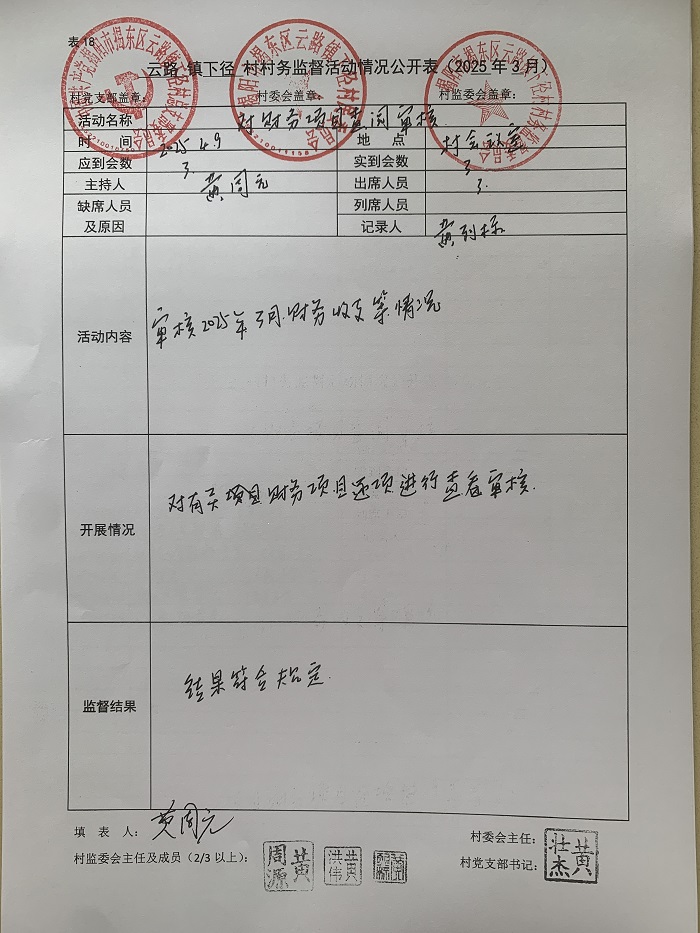 表 18
云路 镇下径 村村务监督活动情况公开表（2025 年 3 月）
村党支部盖章： 村委会盖章： 村监委会盖章：
活动名称 对财务项目查阅审核
时 间 2025.4.9 地 点 村会议室
应到会数 3. 实到会数 3
主持人 黄周元 出席人员 3.
缺席人员及原因 列席人员
记录人 黄
活动内容 审核2025年3月财务收支等情况
开展情况 对有关项目财务项目逐项进行查看审核.
监督结果 结果符合规定.
填 表 人： 黄周元
村委会主任：
村监委会主任及成员（2/3 以上）： 黄周源 黄洪伟 村党支部书记： 黄壮杰